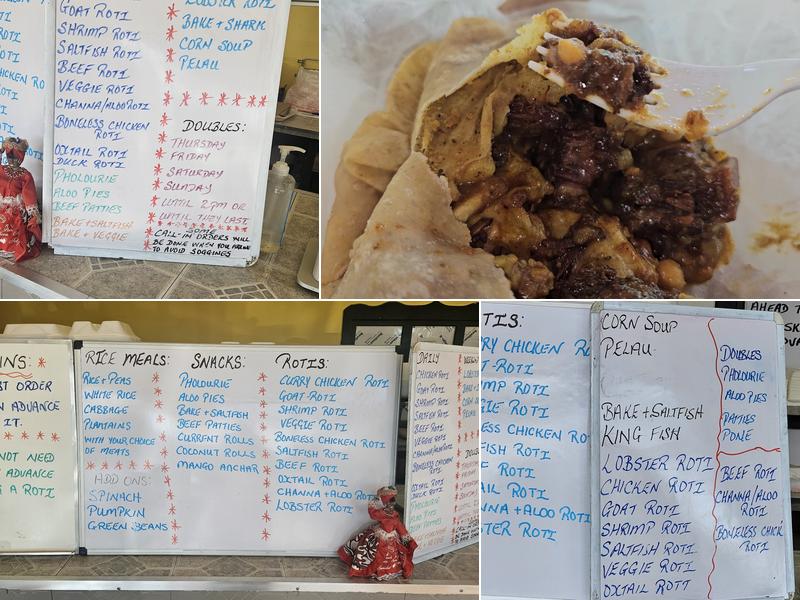 GOAT ROTI
SHRIMP ROTI
SALTFISH ROTI
BEEF ROTI
VEGGIE ROTI
CHANNA/ALOO ROTI
BONELESS CHICKEN
ROTI
OXTAIL ROTI
DUCK ROTI
PHOLOURIE
ALOO PIES
BEEF PATTIES
BAKE + SALTFISH
BAKE + VEGGIE
LOBSTER ROTI
BAKE + SHARK
CORN SOUP
PELAU
DOUBLES:
THURSDAY
FRIDAY
SATURDAY
SUNDAY
UNTIL 2PM OR
UNTIL THEY LAST
SOME
CALL-IN ORDERS WILL
BE DONE WHEN YOU ARRIVE
TO AVOID SOGGINES
ORDER
ADVANCE
IT.
NOT NEED
ADVANCE
A ROTI
RICE MEALS:
RICE + PEAS
WHITE RICE
CABBAGE
PLANTAINS
WITH YOUR CHOICE
OF MEATS
ADD ONS:
SPINACH
PUMPKIN
GREEN BEANS
SNACKS:
PHOLOURIE
ALOO PIES
BAKE + SALTFISH
BEEF PATTIES
CURRENT ROLLS
COCONUT ROLLS
MANGO ANCHAR
ROTIS:
CURRY CHICKEN ROTI
GOAT-ROTI
SHRIMP ROTI
VEGGIE ROTI
BONELESS CHICKEN ROTI
SALTFISH ROTI
BEEF ROTI
OXTAIL ROTI
CHANNA + ALOO ROTI
LOBSTER ROTI
DAILY
CHICKEN ROTI
GOAT ROTI
SHRIMP ROTI
SALTFISH ROTI
BEEF ROTI
VEGGIE ROTI
CHANNA/ALOO ROTI
BONELESS CHICKEN
ROTI
OXTAIL ROTI
DUCK ROTI
PHOLOURIE
ALOO PIES
BEEF PATTIES
CORN SOUP
PELAU
BAKE + SALTFISH
KING FISH
LOBSTER ROTI
CHICKEN ROTI
GOAT ROTI
SHRIMP ROTI
SALTFISH ROTI
VEGGIE ROTI
OXTAIL ROTI
DOUBLES
PHOLOURIE
ALOO PIES
PATTIES
PONE
BEEF ROTI
CHANNA/ALOO
ROTI
BONELESS CHICK
ROTI
AHEAD